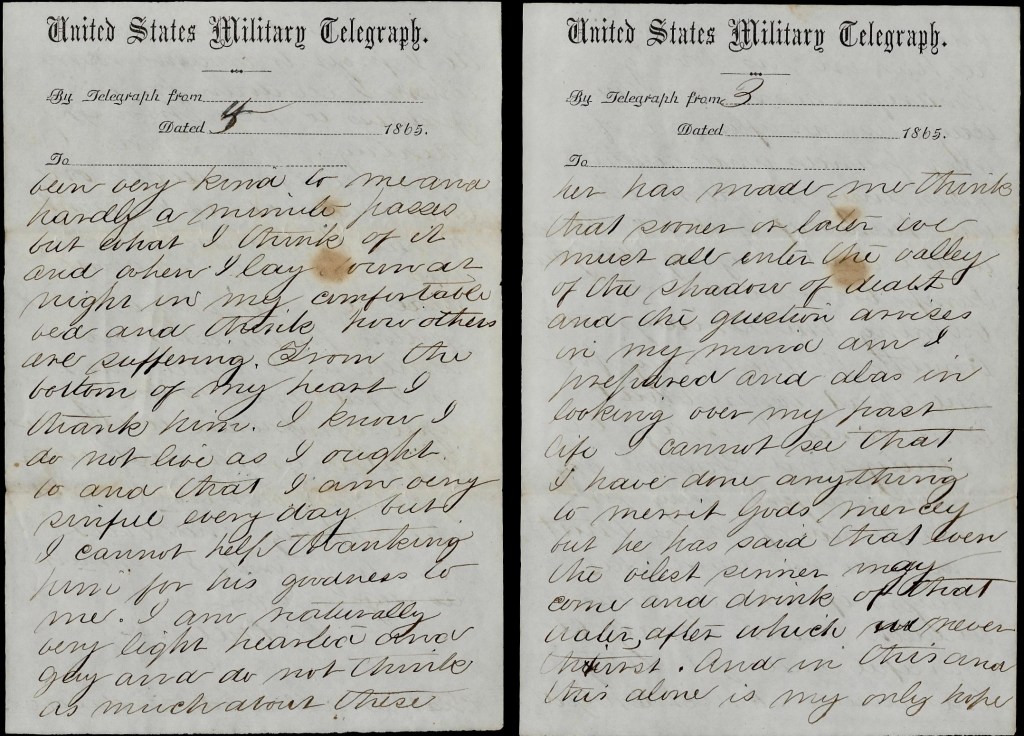 United States Military Telegraph.
By Telegraph from
Dated 4 1865.
To
been very kind to me and
hardly a minute passes
but what I think of it
and when I lay down at
night in my comfortable
bed and think how others
are suffering. From the
bottom of my heart I
thank him. I know I
do not live as I ought
to and that I am very
sinful every day but
I cannot help thanking
him for his goodness to
me. I am naturally
very light hearted and
gay and do not think
as much about these
United States Military Telegraph.
By Telegraph from 3
Dated 1865.
To
her has made me think
that sooner or later we
must all enter the valley
of the shadow of death
and the question arrises
in my mind am I
prepared and alas in
looking over my past
life I cannot see that
I have done anything
to merrit Gods mercy
but he has said that even
the vilest sinner may
come and drink of that
water, after which never
thirst. And in this and
this alone is my only hope